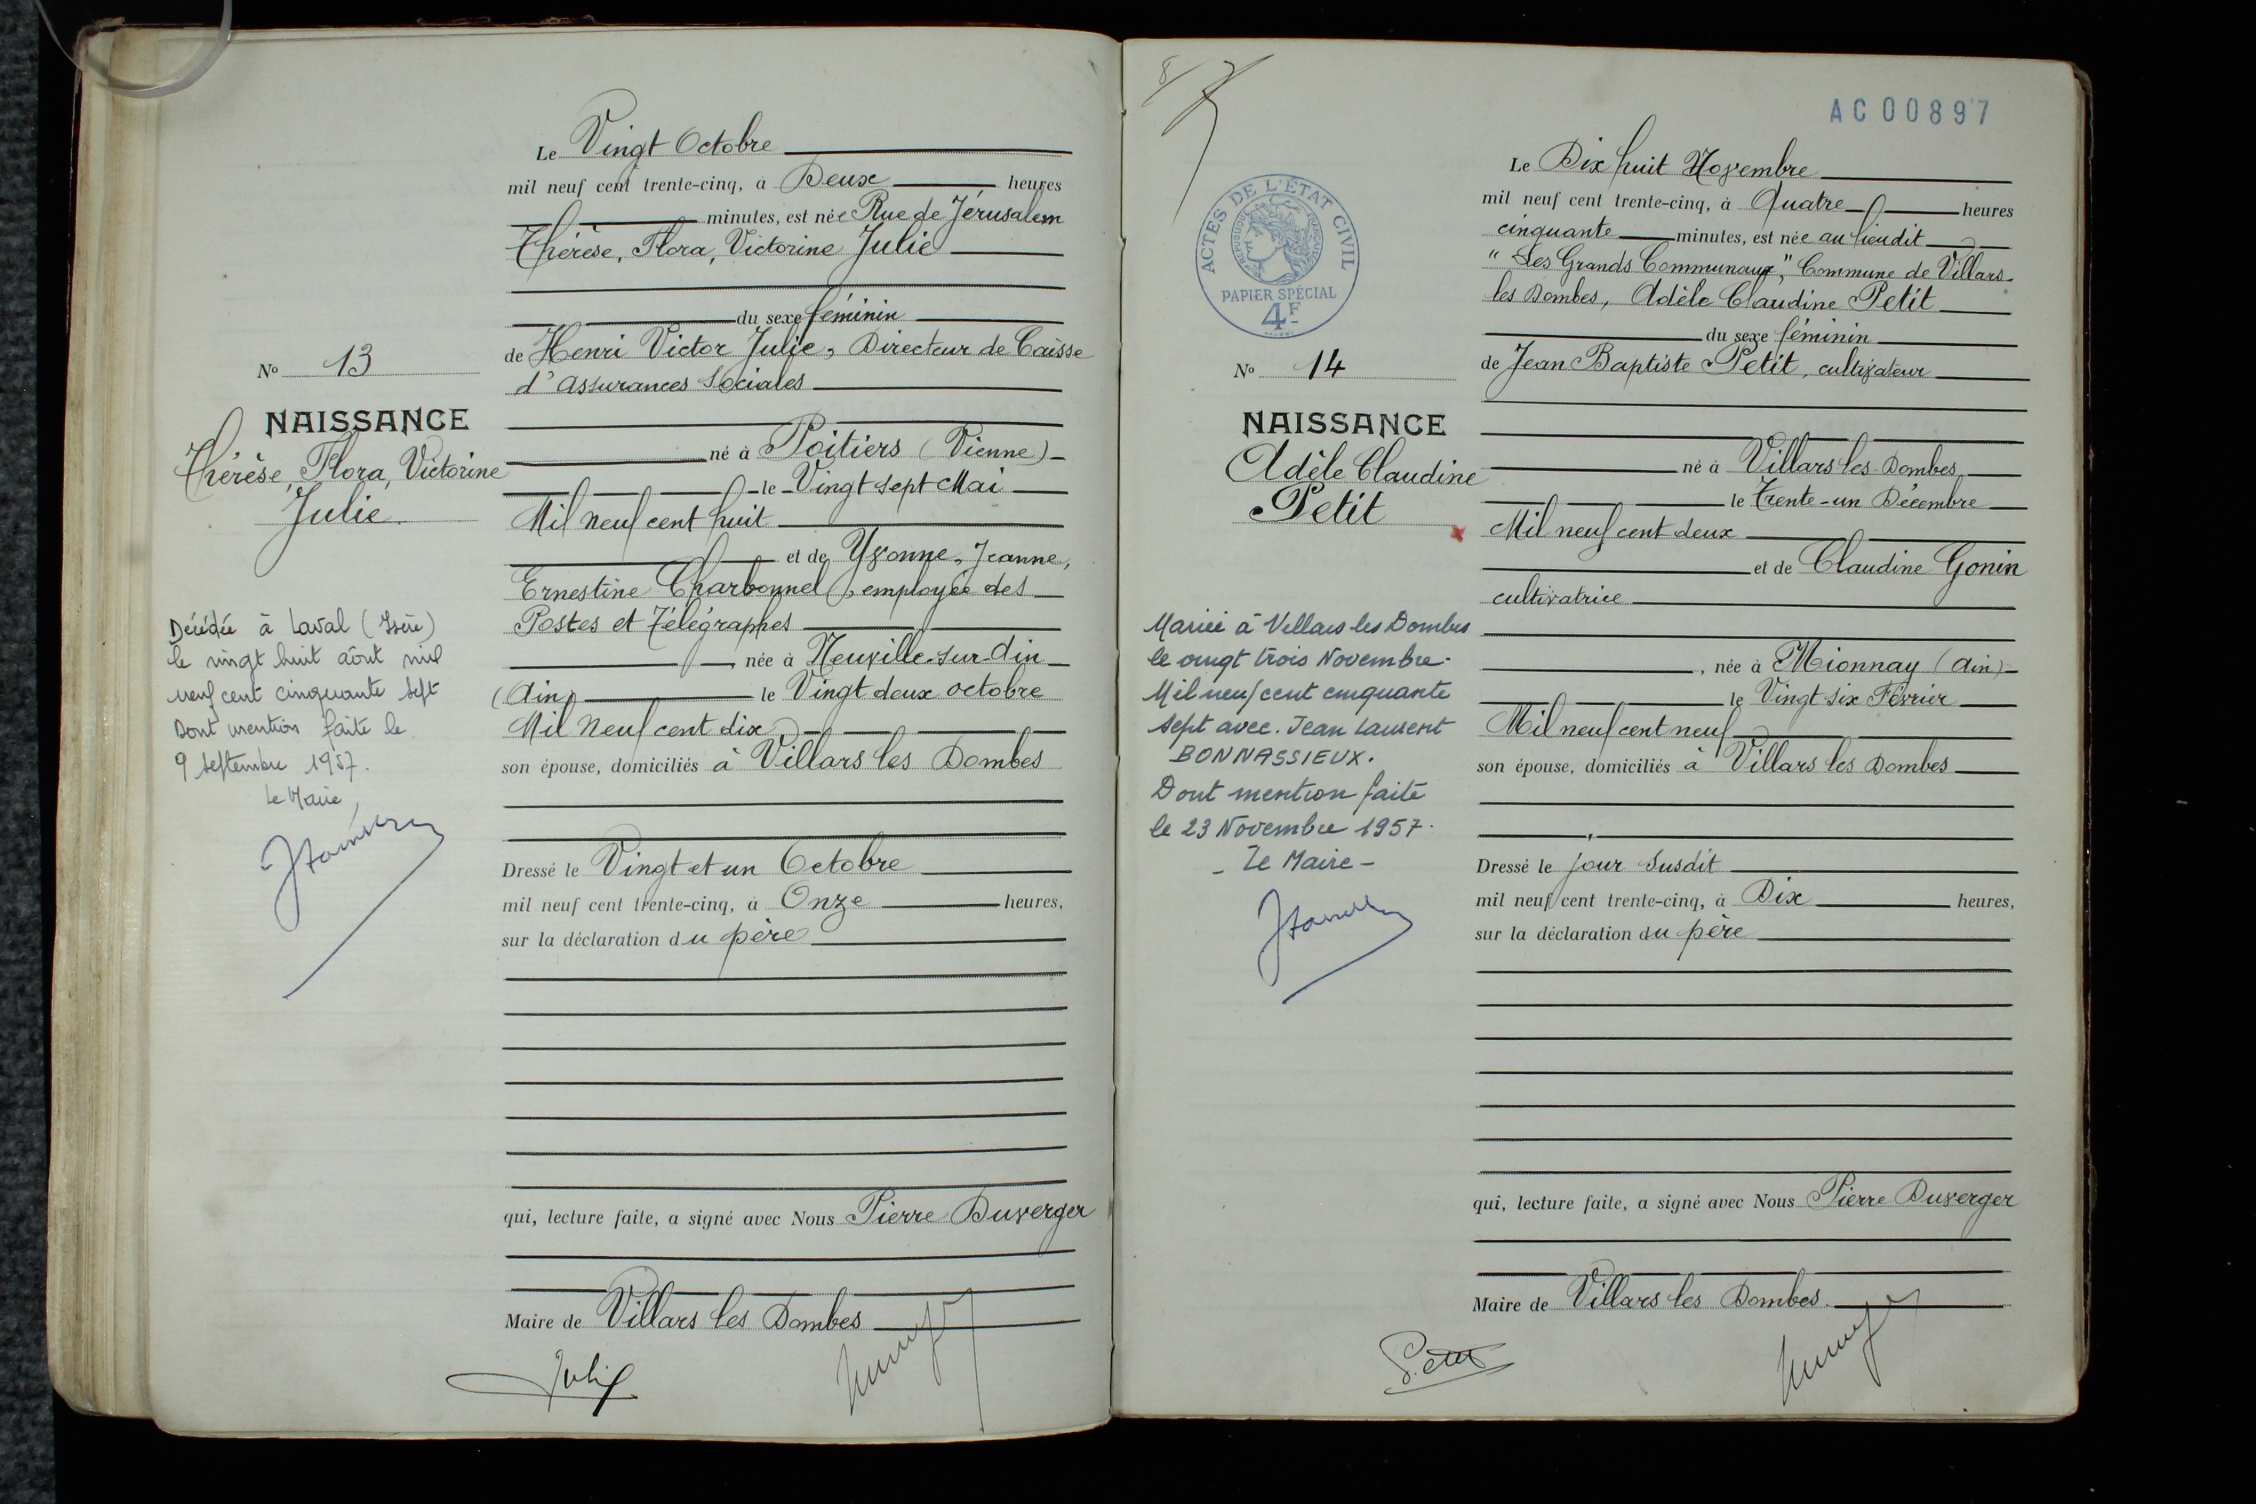 Le Vingt Octobre
mil neuf cent trente-cinq, à Deux heures
minutes, est née Rue de Jérusalem
Thérèse, Flora, Victorine Julie
du sexe féminin
de Henri Victor Julie, Directeur de Caisse
d'assurances sociales
né à Poitiers (Vienne)
le Vingt sept Mai
Mil neuf cent huit
et de Yvonne, Jeanne,
Ernestine Charbonnel, employée des
Postes et Télégraphes
, née à Neuville-sur-Ain
(Ain) le Vingt deux octobre
Mil Neuf cent dix
son épouse, domiciliés à Villars les Dombes
Dressé le Vingt et un Octobre
mil neuf cent trente-cinq, à Onze heures,
sur la déclaration du père
qui, lecture faite, a signé avec Nous Pierre Duverger
Maire de Villars les Dombes
Julie
No 13
NAISSANCE
Thérèse, Flora, Victorine
Julie
Décédée à Laval (Isère)
le vingt huit août mil
neuf cent cinquante sept
Dont mention faite le
9 septembre 1957.
Le Maire,
8/
AC00897
ACTES DE L'ÉTAT CIVIL
RÉPUBLIQUE FRANÇAISE
PAPIER SPÉCIAL
4F
No 14
NAISSANCE
Adèle Claudine
Petit
Mariée à Villars les Dombes
le vingt trois Novembre
Mil neuf cent cinquante
sept avec Jean Laurent
BONNASSIEUX.
Dont mention faite
le 23 Novembre 1957.
- Le Maire -
Le Dix huit Novembre
mil neuf cent trente-cinq, à Quatre heures
cinquante minutes, est née au lieudit
"Les Grands Communaux", Commune de Villars-
les Dombes, Adèle Claudine Petit
du sexe féminin
de Jean Baptiste Petit, cultivateur
né à Villars les Dombes
le Trente-un Décembre
Mil neuf cent deux
et de Claudine Gonin
cultivatrice
, née à Mionnay (Ain)
le Vingt six Février
Mil neuf cent neuf
son épouse, domiciliés à Villars les Dombes
Dressé le jour susdit
mil neuf cent trente-cinq, à Dix heures,
sur la déclaration du père
qui, lecture faite, a signé avec Nous Pierre Duverger
Maire de Villars les Dombes
Petit